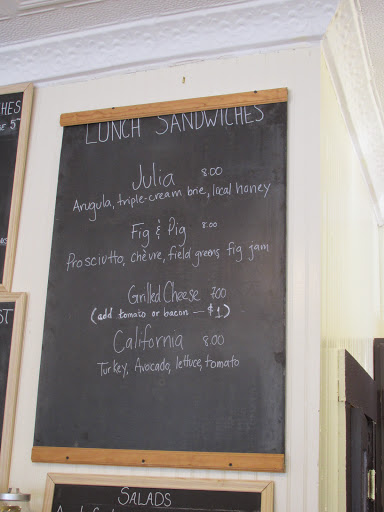 LUNCH SANDWICHES
Julia 8.00
Arugula, triple-cream brie, local honey
Fig & Pig 8.00
Prosciutto, chèvre, field greens, fig jam
Grilled Cheese 7.00
(add tomato or bacon — $1)
California 8.00
Turkey, Avocado, lettuce, tomato
SALADS